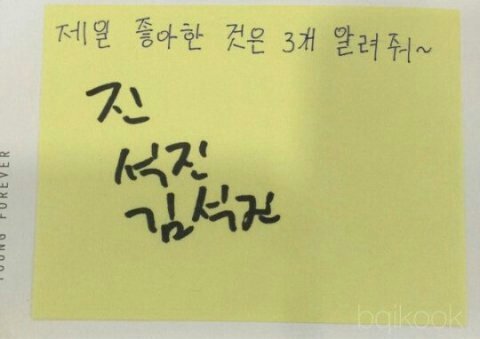 제일 좋아한 것은 3개 알려줘~
진
석진
김석진
YOUNG FOREVER
bqikook